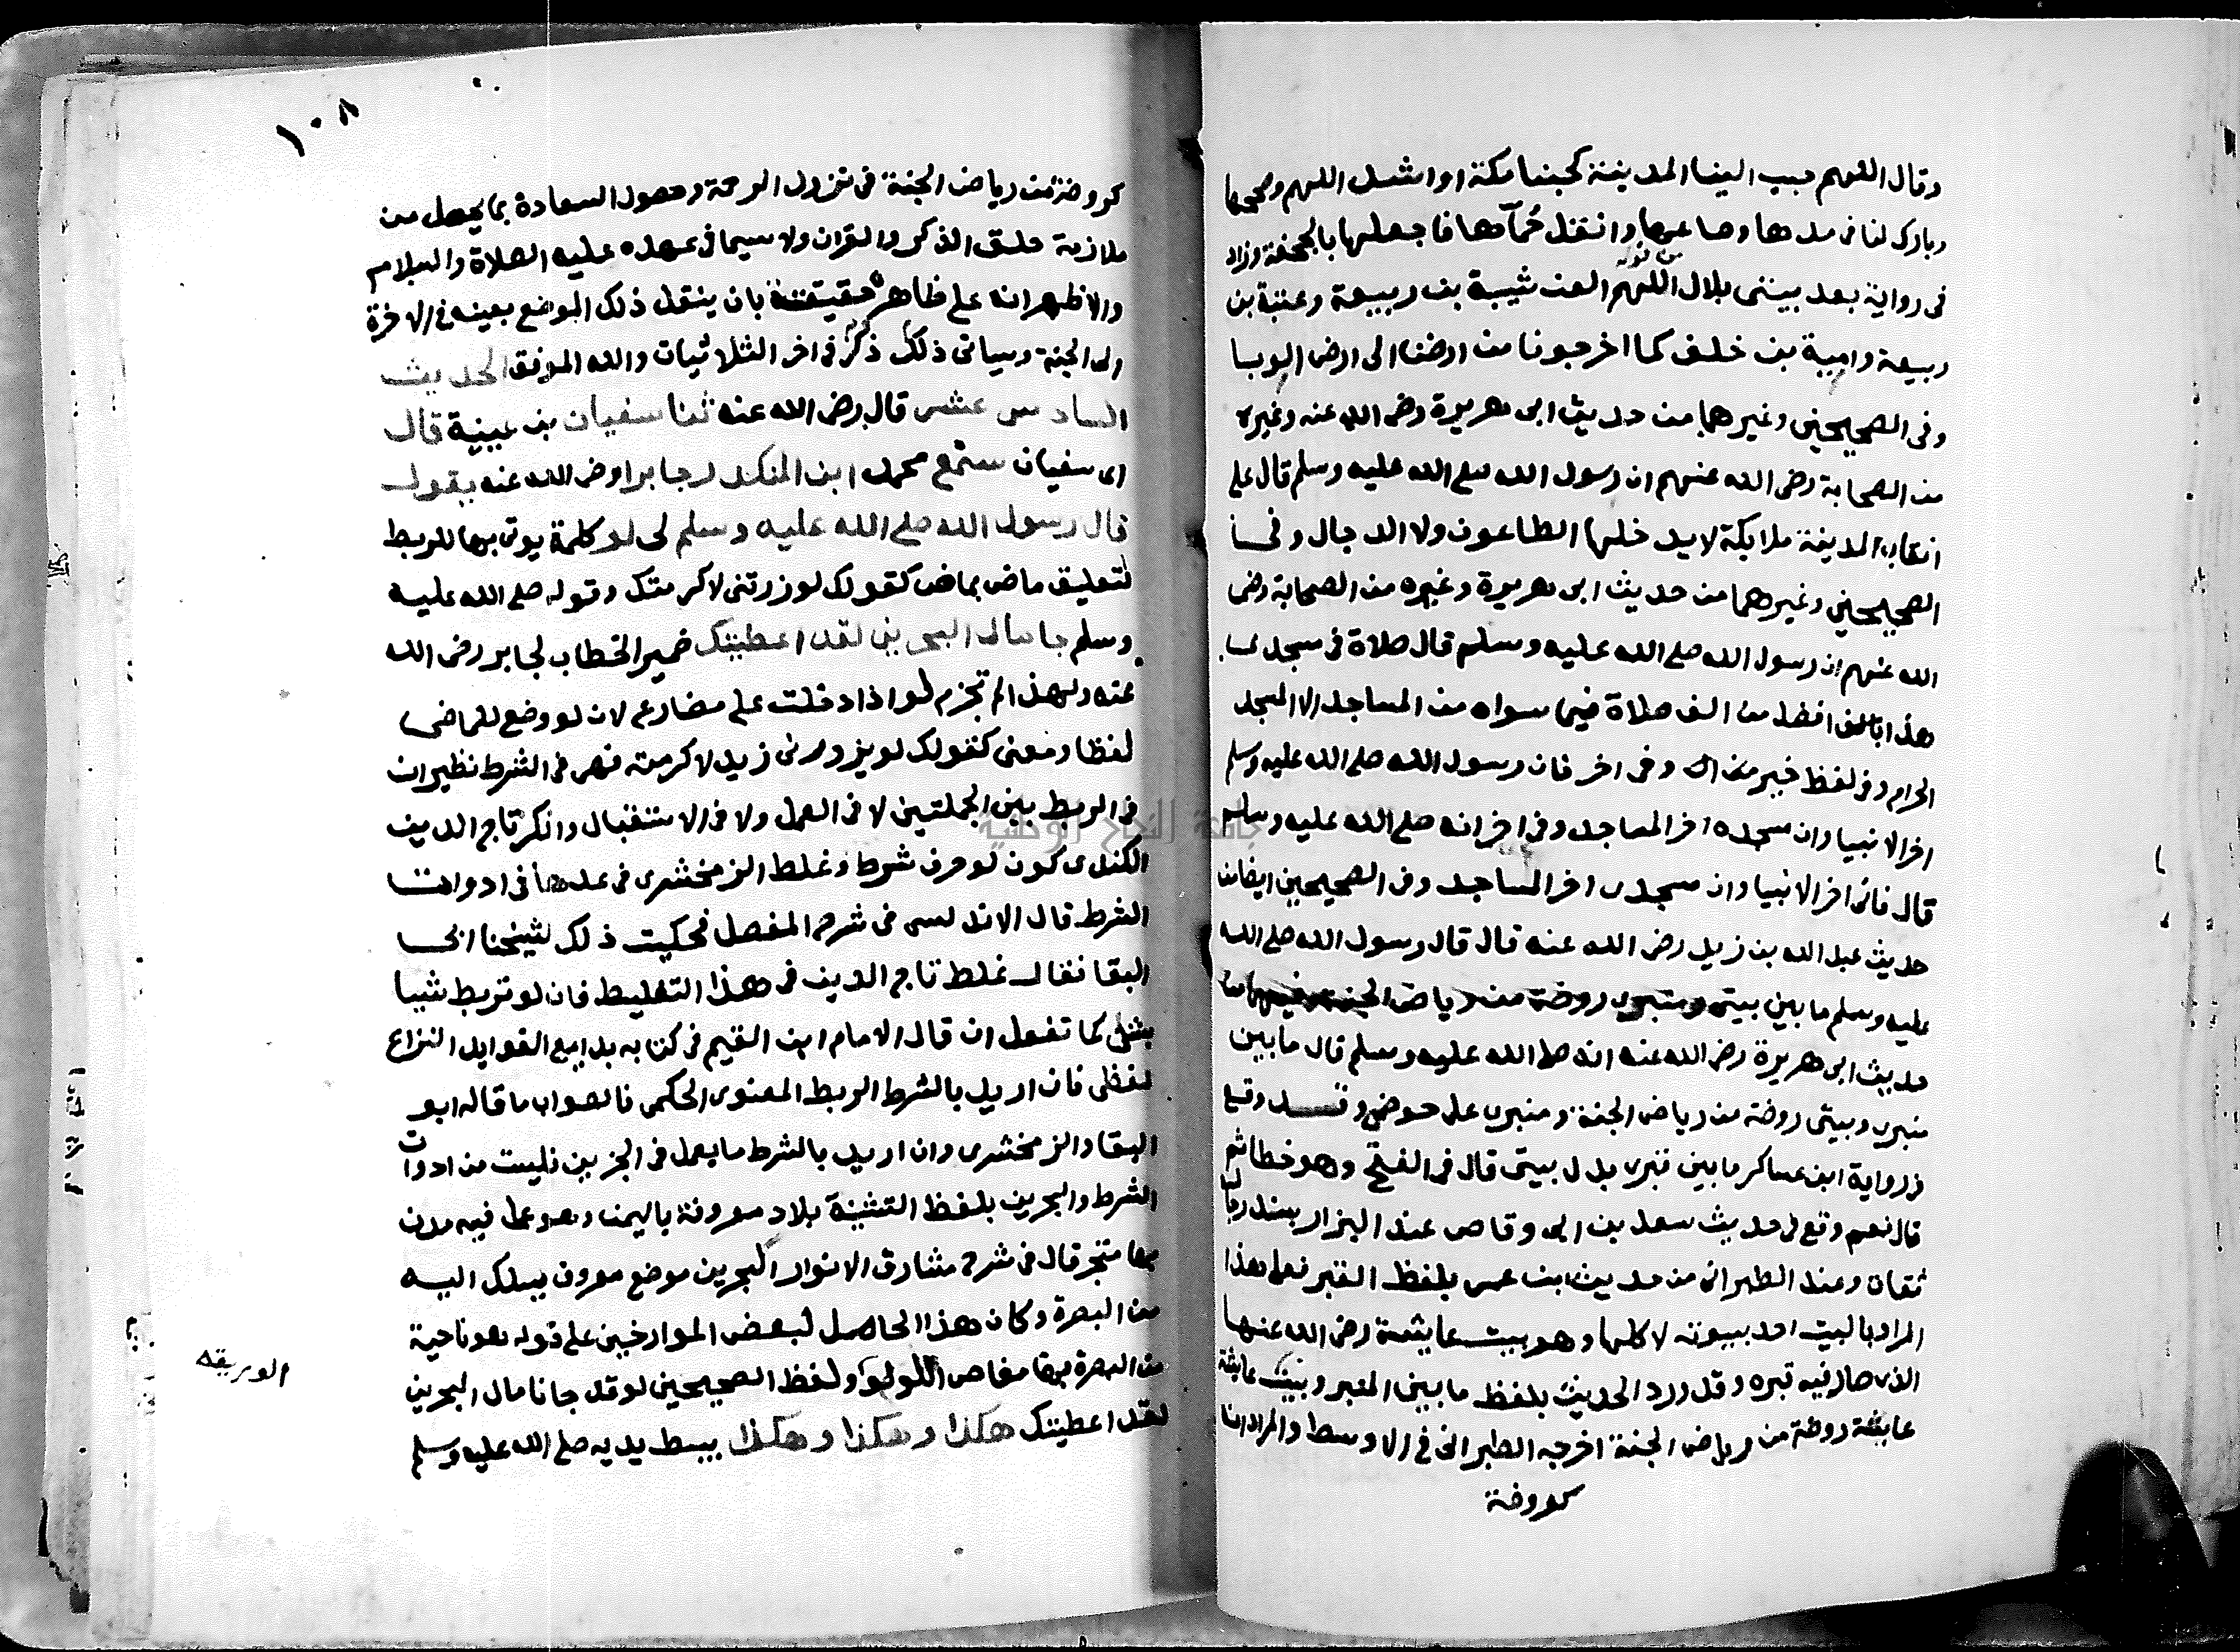 وقال اللهم حبب الينا المدينة كحبنا مكة او اشد اللهم وصححها
وبارك لنا في مدها وصاعها وانقل حُمّآها فاجعلها بالجحفة وزاد
من قوله
في رواية بعد بيتي بلال اللهم العن شيبة بن ربيعة وعتبة بن
ربيعة وامية بن خلف كما اخرجونا من ارضنا الى ارض الوبا
وفي الصحيحين وغيرهما من حديث ابى هريرة رضى الله عنه وغيره
من الصحابة رضى الله عنهم ان رسول الله صلى الله عليه وسلم قال على
انقاب المدينة ملايكة لا يدخلها الطاعون ولا الدجال وفي
الصحيحين وغيرهما من حديث ابى هريرة وغيره من الصحابة رضى
الله عنهم ان رسول الله صلى الله عليه وسلم قال صلاة في مسجدى
هذا افضل من الف صلاة فيما سواه من المساجد الا المسجد
الحرام وفي لفظ خير من الف وفي اخر فان رسول الله صلى الله عليه وسلم
اخر الانبيا وان مسجده اخر المساجد وفي اخر انه صلى الله عليه وسلم
قال فانى اخر الانبيا وان مسجدى اخر المساجد وفي الصحيحين ايضا من
حديث عبد الله بن زيد رضى الله عنه قال قال رسول الله صلى الله
عليه وسلم ما بين بيتى ومنبرى روضة من رياض الجنة وفيهما من
حديث ابى هريرة رضى الله عنه انه صلى الله عليه وسلم قال ما بين
منبرى وبيتى روضة من رياض الجنة ومنبرى على حوضى وقد وقع
في رواية ابن عساكر ما بين قبرى بدل بيتى قال في الفتح وهو خطا ثم
قال نعم وقع في حديث سعد بن ابى وقاص عند البزار بسند رجاله
ثقات وعند الطبرانى من حديث ابن عمر بلفظ القبر فعلى هذا
المراد بالبيت احد بيوته لا كلها وهو بيت عايشة رضى الله عنها
الذى صار فيه قبره وقد ورد الحديث بلفظ ما بين المنبر وبيت عايشة
عايشة روضة من رياض الجنة اخرجه الطبرانى في الاوسط والمراد انها
كروضة
١٠٨
كروضة من رياض الجنة في نزول الرحمة وحصول السعادة بما يحصل من
ملازمة حلق الذكر والقران ولا سيما في عهده عليه الصلاة والسلام
والاظهر انه على ظاهره حقيقة بان ينقل ذلك الموضع بعينه في الاخرة
الى الجنة وسياتى ذلك ذكر في اخر الثلاثيات والله الموفق الحديث
السادس عشر قال رضى الله عنه ثنا سفيان بن عيينة قال
اى سفيان سمع محمد ابن المنكدر جابرا رضى الله عنه يقول
قال رسول الله صلى الله عليه وسلم لى لو كلمة يوتى بها للربط
لتعليق ماض بماض كقولك لو زرتنى لاكرمتك وقوله صلى الله عليه
وسلم جا مال البحرين لقد اعطيتك ضمير الخطاب لجابر رضى الله
عنه ولهذا لم تجزم لو اذا دخلت على مضارع لان لو وضع للماضى
لفظا ومعنى كقولك لو يزورنى زيد لاكرمته فهى في الشرط نظير ان
في الربط بين الجملتين لا في العمل ولا في الاستقبال وانكر تاج الدين
الكندى كون لو حرف شرط وغلط الزمخشرى في عدها في ادوات
الشرط قال الاندلسى في شرح المفصل فحكيت ذلك لشيخنا ابى
البقا فقال غلط تاج الدين في هذا التغليط فان لو تربط شيا
بشئ كما تفعل ان قال الامام ابن القيم في كتابه بدايع الفوايد النزاع
لفظى فان اريد بالشرط الربط المعنوى الحكمى فالصواب ما قاله ابو
البقا والزمخشرى وان اريد بالشرط ما يعمل في الجزين فليست من ادوات
الشرط والبحرين بلفظ التثنية بلاد معروفة باليمن وهو عمل فيه مدن
بها متجر قال في شرح مشارق الانوار البحرين موضع معروف يسلك اليه
من البصرة وكان هذا الحاصل لبعض الموارخين على قوله هو ناحية
من البصرة بها مغاص اللولو ولفظ الصحيحين لو قد جانا مال البحرين
لقد اعطيتك هكذا وهكذا وهكذا يبسط يديه صلى الله عليه وسلم
جامعة النجاح الوطنية